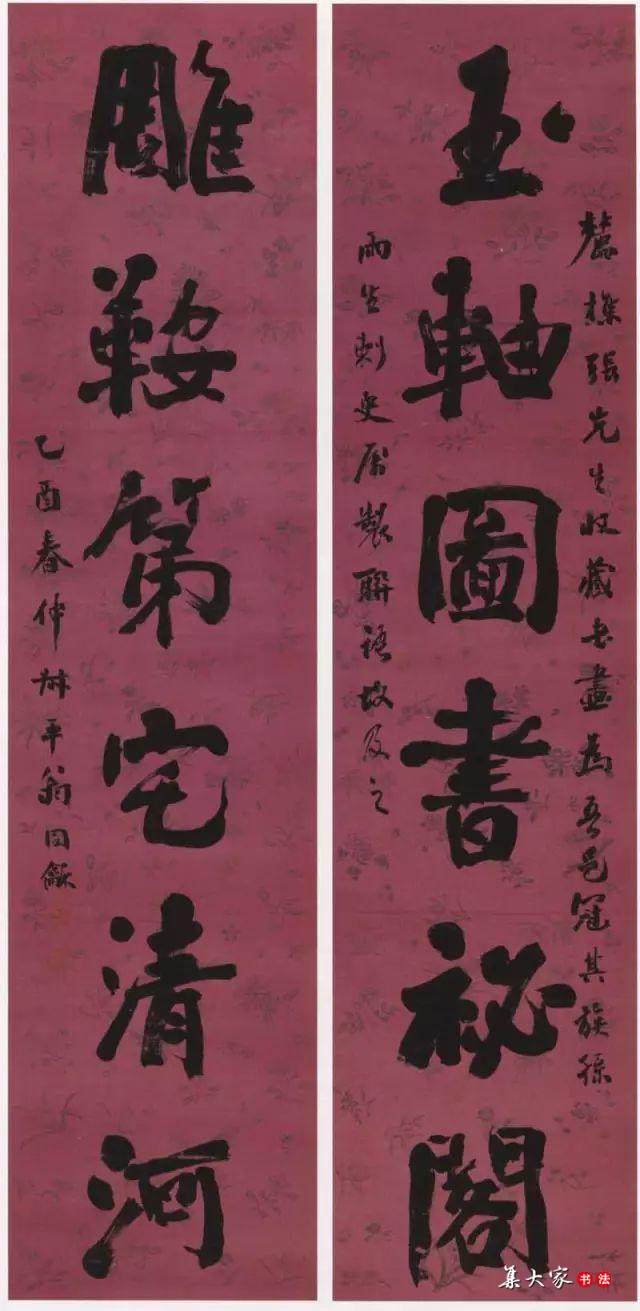 樵張先生收藏書畫為吾邑冠其族孫
玉軸圖書祕閣
雨生刺史屬製聯語故及之
雕鞍第宅清河
乙酉春仲叔平翁同龢
集大家 书法